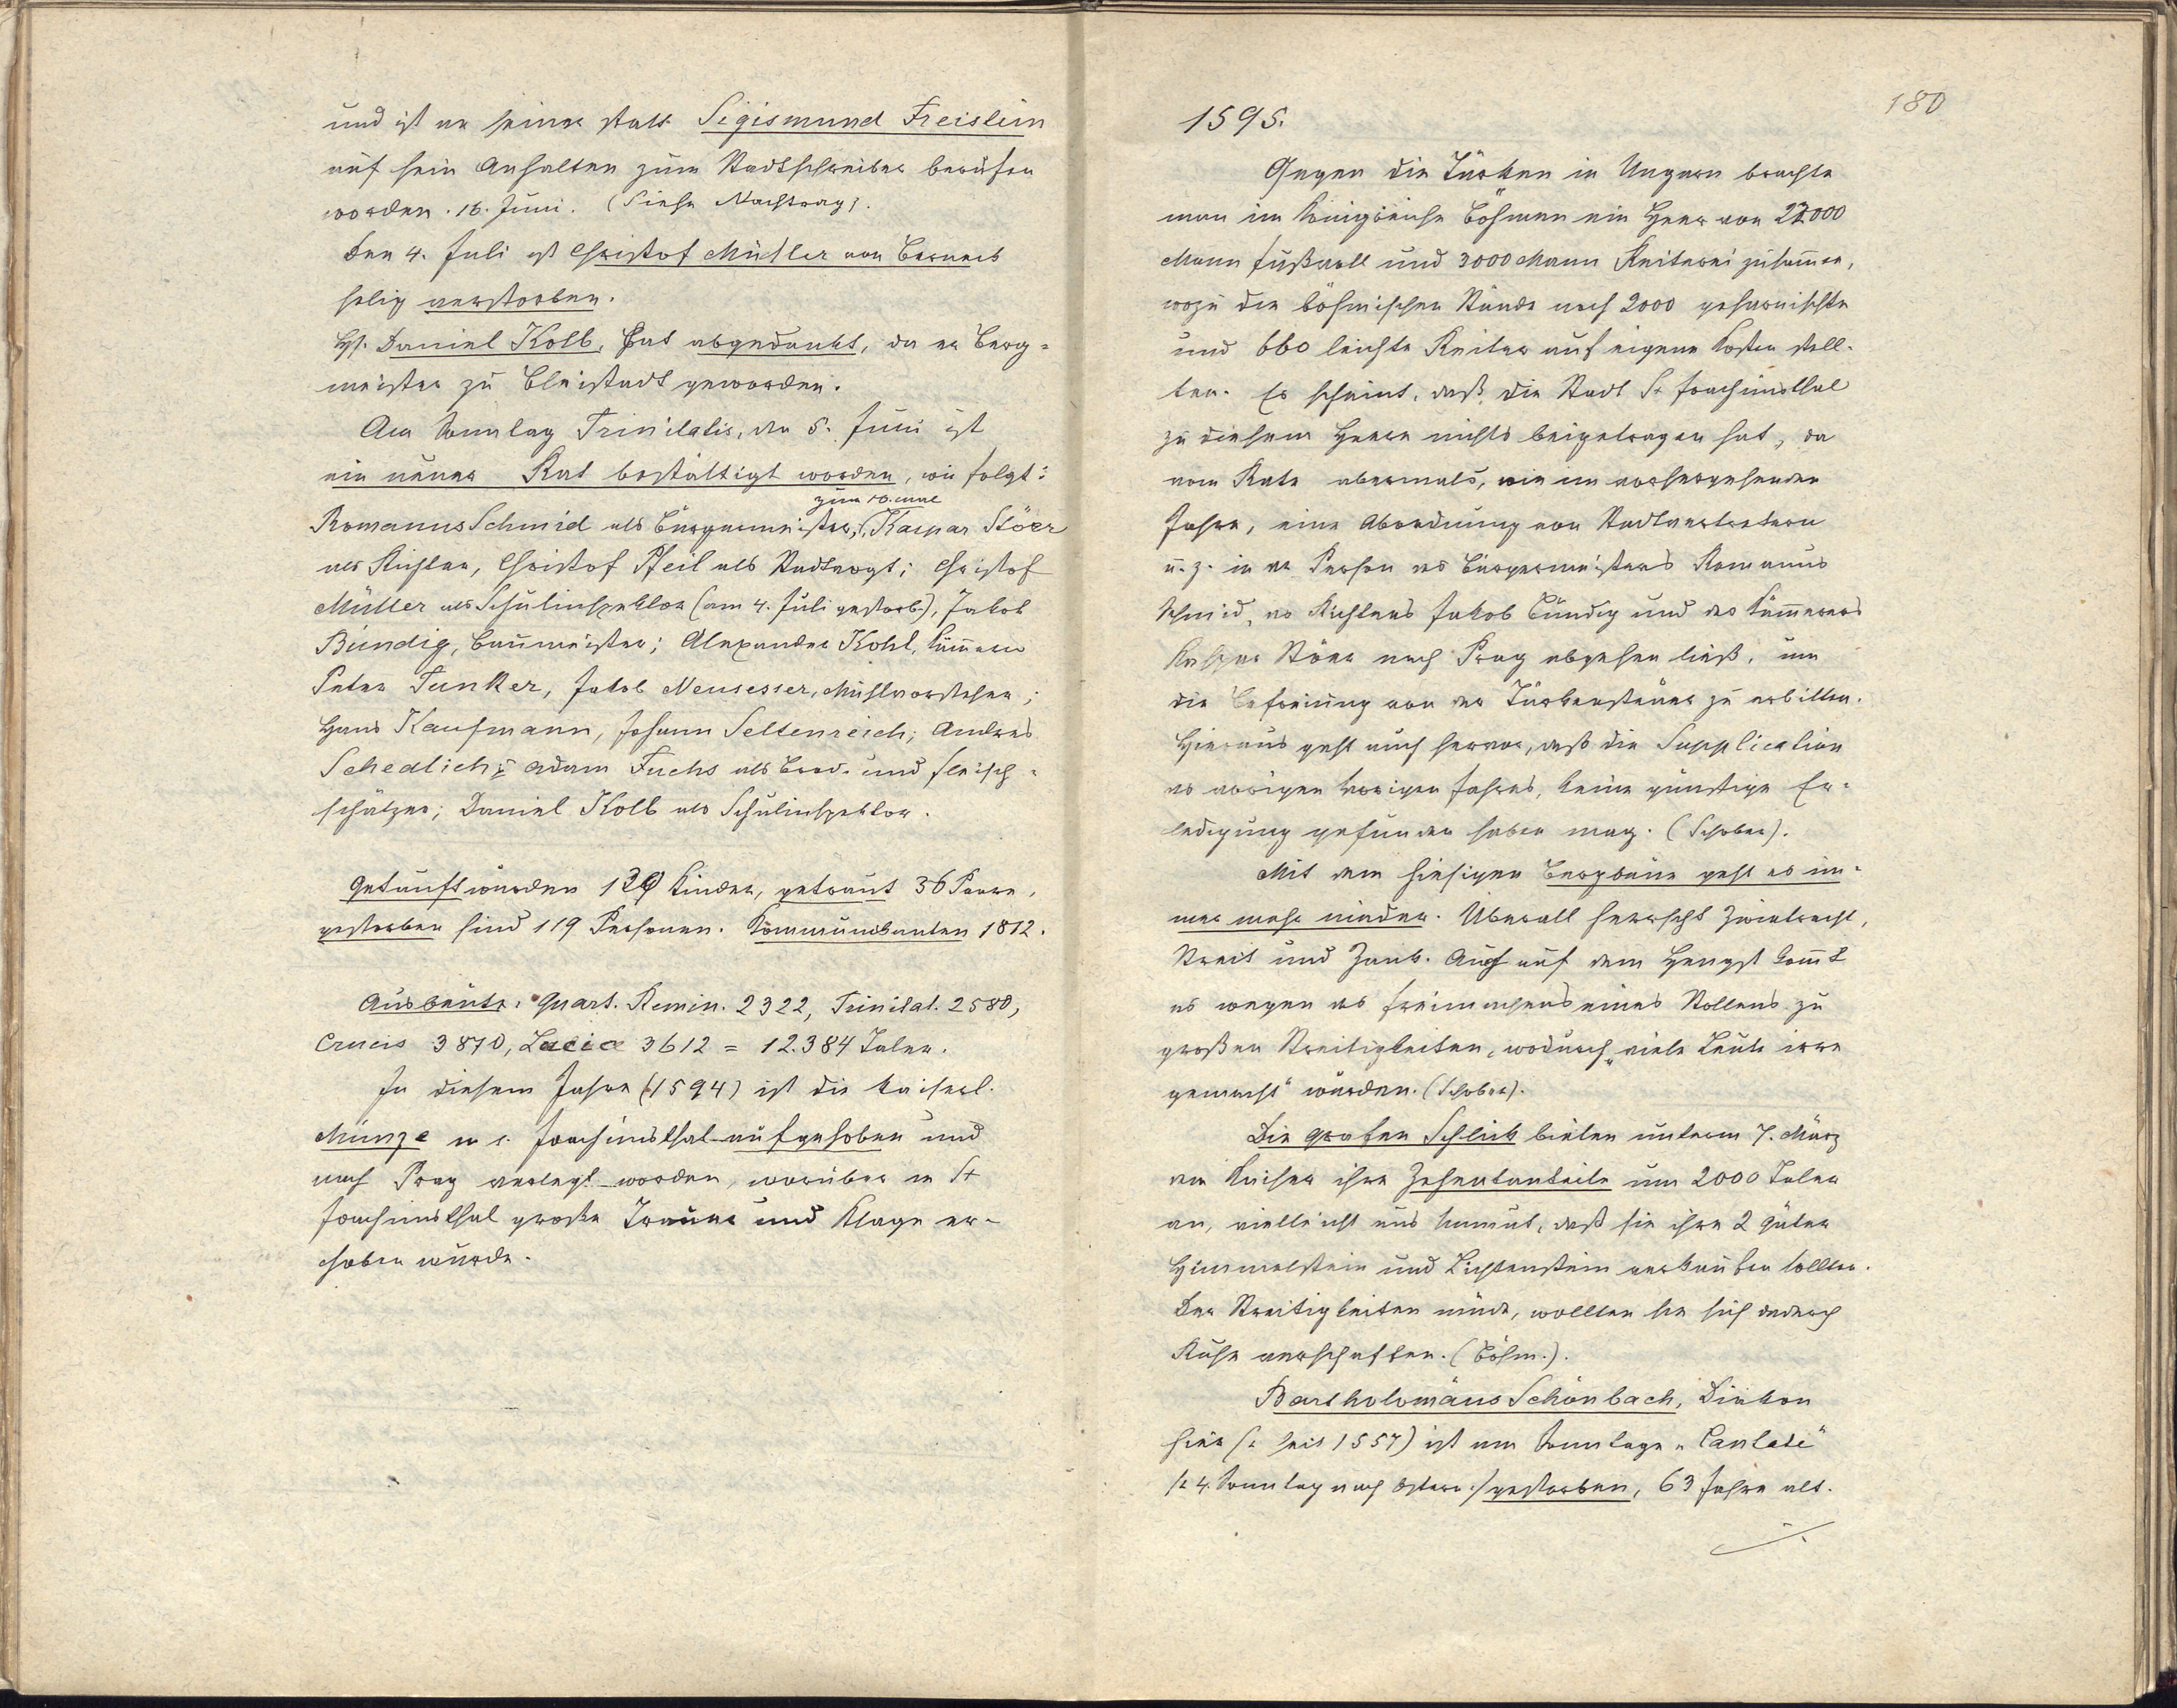 und ist an seiner statt Sigismund Freislein
auf sein Anhalten zum Stadtschreiber berufen
worden. 16. Juni. (Siehe Nachtrag).
Den 4. Juli ist Christof Müller von Berneck
selig verstorben.
H. Daniel Kolb, hat abgedankt, da er Berg-
meister zu Bleistadt geworden.
Am Sonntag Trinitatis, den 5. Juni ist
ein neuer Rat bestättigt worden, wie folgt:
zum 10. male
Romanus Schmid als Bürgermeister, Kaspar Stöer
als Richter, Christof Pfeil als Stadtvogt; Christof
Müller als Schulinspektor (am 4. Juli gestorb.), Jakob
Bündig, Baumeister; Alexander Kohl, Kämmerer
Peter Junker, Jakob Neusesser, Mühlvorsteher;
Hans Kaufmann, Johann Seltenreich; Andreas
Schedlich; Adam Fuchs als Brod- und Fleisch-
schätzer; Daniel Kolb als Schulinspektor.
Getauft wurden 139 Kinder, getraut 36 Paare,
gestorben sind 119 Personen. Kommunikanten 1812.
Ausbeute: Quart. Remin. 2322, Trinitat. 2580,
Crucis 3870, Luciæ 3612 = 12.384 Taler.
In diesem Jahre (1594) ist die kaiserl.
Münze in S. Joachimsthal aufgehoben und
nach Prag verlegt worden, worüber in St
Joachimsthal große Trauer und Klage er-
hoben wurde.
180
1595.
Gegen die Türken in Ungarn brachte
man im Königreiche Böhmen ein Heer von 22000
Mann Fußvolk und 3000 Mann Reiterei zusammen,
wozu die böhmischen Stände noch 2000 geharnischte
und 660 leichte Reiter auf eigene Kosten stell-
ten. Es scheint, daß die Stadt St Joachimsthal
zu diesem Heere nichts beigetragen hat, da
vom Rate abermals, wie im vorhergehenden
Jahre, eine Abordnung von Stadtvertretern
u. z. in der Person des Bürgermeisters Romanus
Schmid, des Richters Jakob Bündig und des Kämmerers
Kaspar Stöer nach Prag abgehen ließ, um
die Befreiung von der Türkensteuer zu erbitten.
Hieraus geht auch hervor, daß die Supplication
des vorigen Jahres, keine günstige Er-
ledigung gefunden haben mag. (Schober).
Mit dem hiesigen Bergbaue geht es im-
mer mehr nieder. Überall herrscht Zwietracht,
Streit und Zank. Auch auf dem Hengst kommt
es wegen des Freimachens eines Stollens zu
großen Streitigkeiten, wodurch „viele Leute irre
gemacht" wurden. (Schober).
Die Grafen Schlick bieten unterm 7. März
dem Kaiser ihre Zehentanteile um 2000 Taler
an, vielleicht aus Unmut, daß sie ihre 2 Güter
Himmelstein und Lichtenstein verkaufen sollten.
Der Streitigkeiten müde, wollten sie sich dadurch
Ruhe verschaffen. (Böhm.).
Bartholomäus Schönbach, Diakon
hier (: seit 1557) ist am Sonntage „Cantate"
/: 4. Sonntag nach Ostern :/ gestorben, 63 Jahre alt.